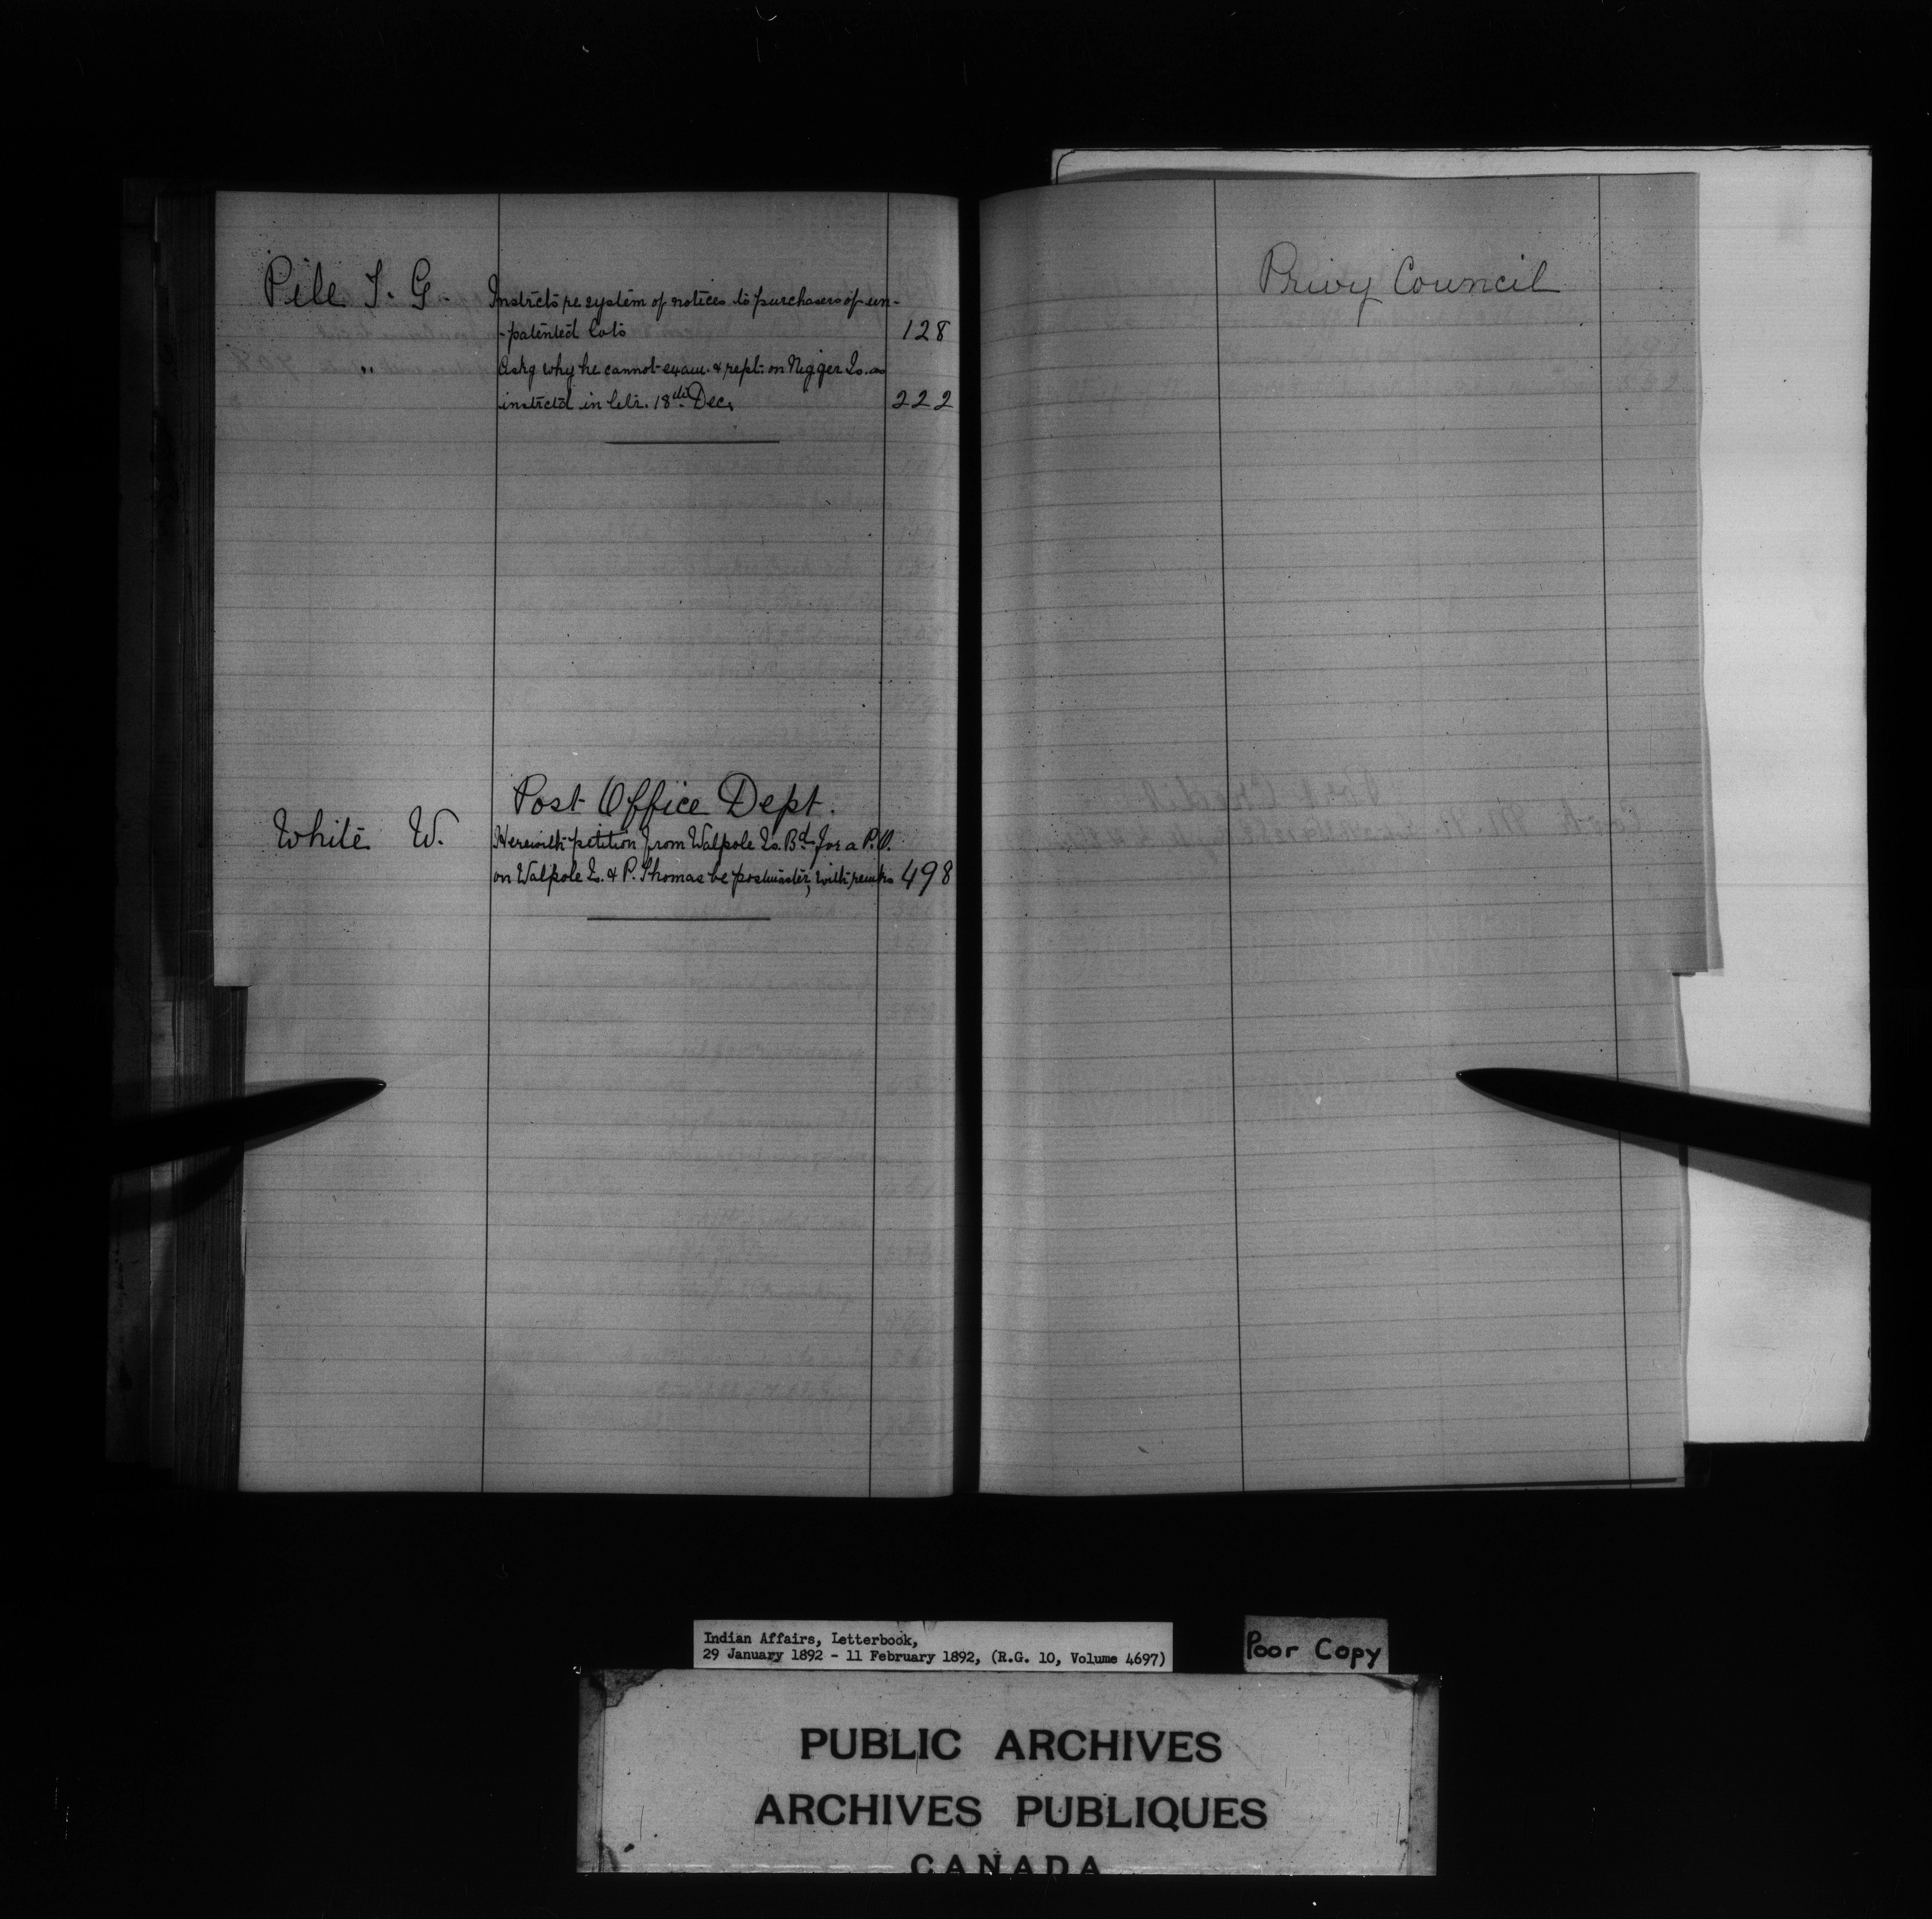 Pile T. G. Instrcts re system of notices to purchasers of un-
-patented lots 128
" Askg why he cannot exam. & rept. on Nigger Is. as
instrctd in letr. 18th Dec. 222
Post Office Dept.
White W. Herewith petition from Walpole Is. Bd. for a P.O.
on Walpole Is. & P. Thomas be postmaster, with remks 498
Privy Council
Indian Affairs, Letterbook,
29 January 1892 - 11 February 1892, (R.G. 10, Volume 4697)
Poor Copy
PUBLIC ARCHIVES
ARCHIVES PUBLIQUES
CANADA